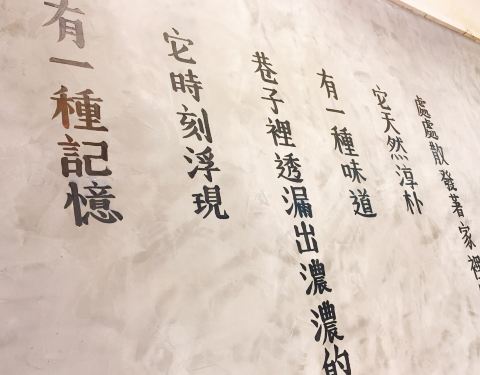 有一種記憶
它時刻浮現
巷子裡透漏出濃濃的
有一種味道
它天然淳朴
處處散發著家裡